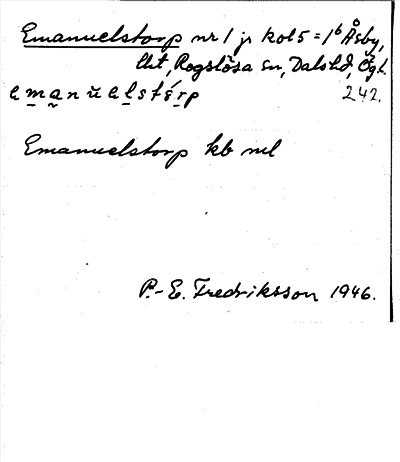 Emanuelstorp nr 1 jr kol 5 = 1b Åsby,
lht, Rogslösa sn, Dals hd, Ögl.
242.
Emanuelstorp kb ml
P.-E. Fredriksson 1946.